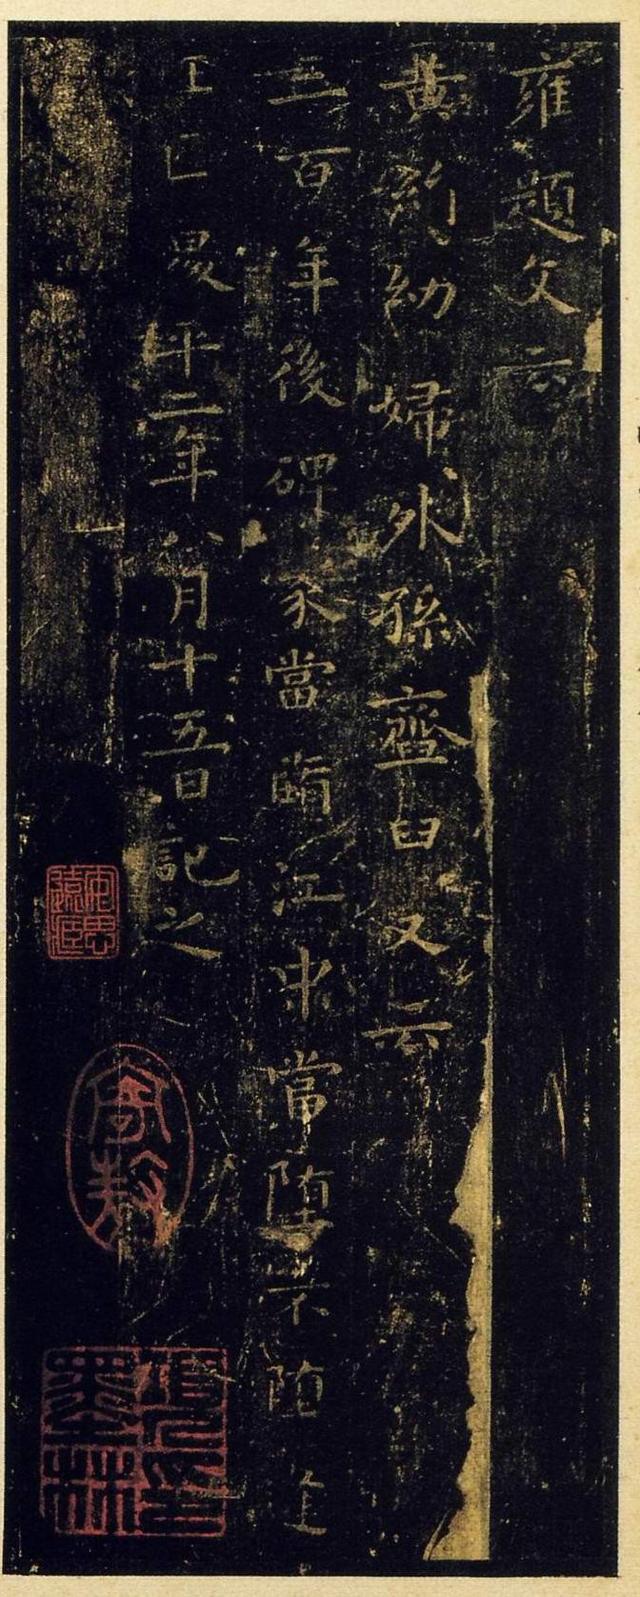 雍題文云
黃絹幼婦外孫齏臼又云
三百年後碑冢當墮江中當墮不墮逢
王叵昇平二年八月十五日記之
安思遠藏
寄敖
墨林